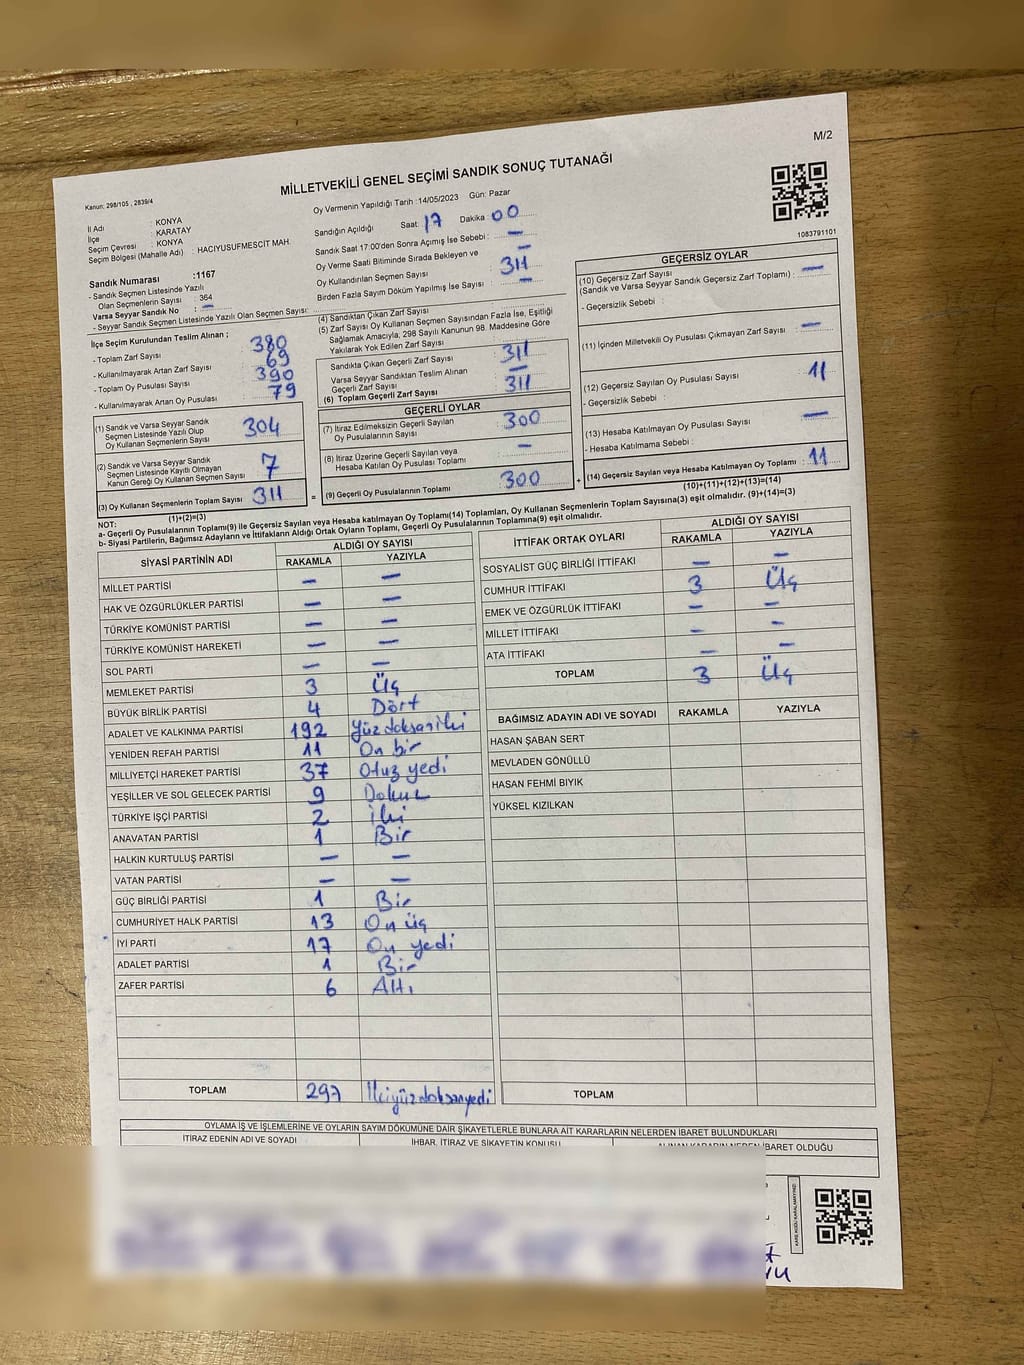 M/2
MİLLETVEKİLİ GENEL SEÇİMİ SANDIK SONUÇ TUTANAĞI
Kanun: 298/105 , 2839/4
İl Adı : KONYA
İlçe : KARATAY
Seçim Çevresi : KONYA
Seçim Bölgesi (Mahalle Adı) : HACIYUSUFMESCİT MAH.
Sandık Numarası :1167
- Sandık Seçmen Listesinde Yazılı
Olan Seçmenlerin Sayısı : 364
Varsa Seyyar Sandık No : –
- Seyyar Sandık Seçmen Listesinde Yazılı Olan Seçmen Sayısı:
Oy Vermenin Yapıldığı Tarih :14/05/2023 Gün: Pazar
Sandığın Açıldığı Saat: 17 Dakika : 00
Sandık Saat 17:00'den Sonra Açımış İse Sebebi : –
Oy Verme Saati Bitiminde Sırada Bekleyen ve –
Oy Kullandırılan Seçmen Sayısı 311
Birden Fazla Sayım Döküm Yapılmış İse Sayısı : –
1083791101
İlçe Seçim Kurulundan Teslim Alınan ;
- Toplam Zarf Sayısı : 380
- Kullanılmayarak Artan Zarf Sayısı : 69
- Toplam Oy Pusulası Sayısı : 390
- Kullanılmayarak Artan Oy Pusulası : 79
(1) Sandık ve Varsa Seyyar Sandık
Seçmen Listesinde Yazılı Olup
Oy Kullanan Seçmenlerin Sayısı 304
(2) Sandık ve Varsa Seyyar Sandık
Seçmen Listesinde Kayıtlı Olmayan
Kanun Gereği Oy Kullanan Seçmen Sayısı 7
(3) Oy Kullanan Seçmenlerin Toplam Sayısı 311
(1)+(2)=(3)
(4) Sandıktan Çıkan Zarf Sayısı
(5) Zarf Sayısı Oy Kullanan Seçmen Sayısından Fazla İse, Eşitliği
Sağlamak Amacıyla, 298 Sayılı Kanunun 98. Maddesine Göre
Yakılarak Yok Edilen Zarf Sayısı
Sandıkta Çıkan Geçerli Zarf Sayısı 311
Varsa Seyyar Sandıktan Teslim Alınan
Geçerli Zarf Sayısı –
(6) Toplam Geçerli Zarf Sayısı 311
GEÇERLİ OYLAR
(7) İtiraz Edilmeksizin Geçerli Sayılan
Oy Pusulalarının Sayısı 300
(8) İtiraz Üzerine Geçerli Sayılan veya
Hesaba Katılan Oy Pusulası Toplamı –
= (9) Geçerli Oy Pusulalarının Toplamı 300 +
GEÇERSİZ OYLAR
(10) Geçersiz Zarf Sayısı
(Sandık ve Varsa Seyyar Sandık Geçersiz Zarf Toplamı) : –
- Geçersizlik Sebebi :
(11) İçinden Milletvekili Oy Pusulası Çıkmayan Zarf Sayısı : –
(12) Geçersiz Sayılan Oy Pusulası Sayısı : 11
- Geçersizlik Sebebi :
(13) Hesaba Katılmayan Oy Pusulası Sayısı : –
- Hesaba Katılmama Sebebi :
(14) Geçersiz Sayılan veya Hesaba Katılmayan Oy Toplamı : 11
(10)+(11)+(12)+(13)=(14)
NOT:
a- Geçerli Oy Pusulalarının Toplamı(9) ile Geçersiz Sayılan veya Hesaba katılmayan Oy Toplamı(14) Toplamları, Oy Kullanan Seçmenlerin Toplam Sayısına(3) eşit olmalıdır. (9)+(14)=(3)
b- Siyasi Partilerin, Bağımsız Adayların ve İttifakların Aldığı Ortak Oyların Toplamı, Geçerli Oy Pusulalarının Toplamına(9) eşit olmalıdır.
SİYASİ PARTİNİN ADI ALDIĞI OY SAYISI
RAKAMLA YAZIYLA
MİLLET PARTİSİ – –
HAK VE ÖZGÜRLÜKLER PARTİSİ – –
TÜRKİYE KOMÜNİST PARTİSİ – –
TÜRKİYE KOMÜNİST HAREKETİ – –
SOL PARTİ – –
MEMLEKET PARTİSİ 3 Üç
BÜYÜK BİRLİK PARTİSİ 4 Dört
ADALET VE KALKINMA PARTİSİ 192 Yüzdoksaniki
YENİDEN REFAH PARTİSİ 11 On bir
MİLLİYETÇİ HAREKET PARTİSİ 37 Otuz yedi
YEŞİLLER VE SOL GELECEK PARTİSİ 9 Dokuz
TÜRKİYE İŞÇİ PARTİSİ 2 İki
ANAVATAN PARTİSİ 1 Bir
HALKIN KURTULUŞ PARTİSİ – –
VATAN PARTİSİ – –
GÜÇ BİRLİĞİ PARTİSİ 1 Bir
CUMHURİYET HALK PARTİSİ 13 On üç
İYİ PARTİ 17 On yedi
ADALET PARTİSİ 1 Bir
ZAFER PARTİSİ 6 Altı
TOPLAM 297 İkiyüzdoksanyedi
İTTİFAK ORTAK OYLARI ALDIĞI OY SAYISI
RAKAMLA YAZIYLA
SOSYALİST GÜÇ BİRLİĞİ İTTİFAKI – –
CUMHUR İTTİFAKI 3 Üç
EMEK VE ÖZGÜRLÜK İTTİFAKI – –
MİLLET İTTİFAKI – –
ATA İTTİFAKI – –
TOPLAM 3 Üç
BAĞIMSIZ ADAYIN ADI VE SOYADI RAKAMLA YAZIYLA
HASAN ŞABAN SERT
MEVLADEN GÖNÜLLÜ
HASAN FEHMİ BIYIK
YÜKSEL KIZILKAN
TOPLAM
OYLAMA İŞ VE İŞLEMLERİNE VE OYLARIN SAYIM DÖKÜMÜNE DAİR ŞİKAYETLERLE BUNLARA AİT KARARLARIN NELERDEN İBARET BULUNDUKLARI
İTİRAZ EDENİN ADI VE SOYADI İHBAR, İTİRAZ VE ŞİKAYETİN KONUSU ALINAN KARARIN NEDEN İBARET OLDUĞU